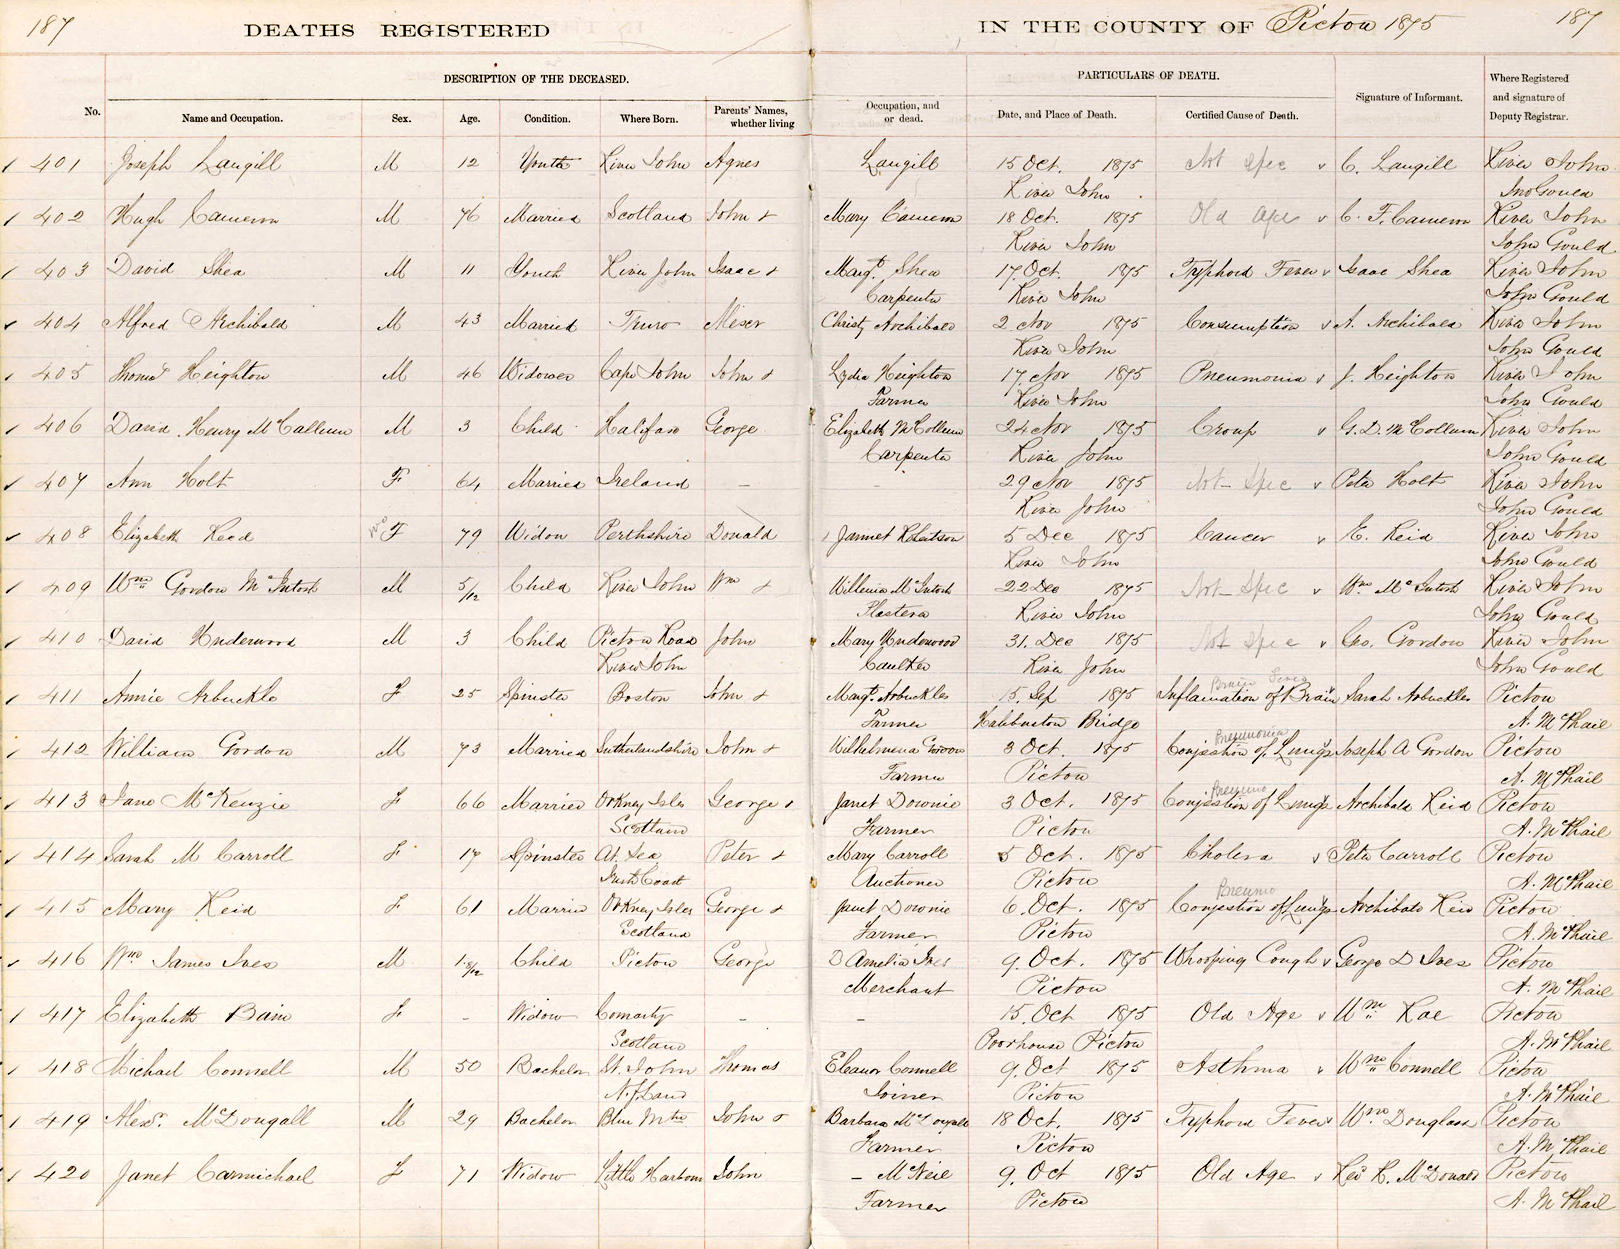 187
DEATHS REGISTERED IN THE COUNTY OF Pictou 1875
187
DESCRIPTION OF THE DECEASED. PARTICULARS OF DEATH.
No. Name and Occupation. Sex. Age. Condition. Where Born. Parents' Names, whether living Occupation, and or dead. Date, and Place of Death. Certified Cause of Death. Signature of Informant. Where Registered and signature of Deputy Registrar.
401 Joseph Langill M 12 Youth River John Agnes Langill 15 Oct. 1875 Not Spec C. Langill River John
River John Jno Gould
402 Hugh Cameron M 76 Married Scotland John + Mary Cameron 18 Oct. 1875 Old age C. F. Cameron River John
River John John Gould
403 David Shea M 11 Youth River John Isaac + Margt. Shea 17 Oct. 1875 Typhoid Fever Isaac Shea River John
Carpenter River John John Gould
404 Alfred Archibald M 43 Married Truro Christy Archibald 2 Nov 1875 Consumption A. Archibald River John
River John John Gould
405 Thomas Heighton M 46 Widower Cape John John + Lydia Heighton 17 Nov 1875 Pneumonia J. Heighton River John
Farmer River John John Gould
406 David Henry McCallum M 3 Child Halifax George Elizabeth McCollum 24 Nov 1875 Croup G. D. McCollum River John
Carpenter River John John Gould
407 Ann Holt F 64 Married Ireland – - 29 Nov 1875 Not Spec Peter Holt River John
River John John Gould
408 Elizabeth Reed F 79 Widow Perthshire Donald Jannet Robertson 5 Dec 1875 Cancer Reid River John
River John John Gould
409 Wm Gordon McIntosh M 5/12 Child River John Wm + Willemia McIntosh 22 Dec 1875 Not Spec Wm McIntosh River John
Plasterer River John John Gould
410 David Underwood M 3 Child Pictou Road John Mary Underwood 31. Dec 1875 Not Spec Geo. Gordon River John
River John Caulker River John John Gould
Brain Fever
411 Annie Arbuckle F 25 Spinster Boston John + Margt. Arbuckles 15 Sep 1875 Inflamation of Brain Sarah Arbuckles Pictou
Farmer Haliburton Bridge A. McPhail
Pneumonia
412 William Gordon M 73 Married Sutherlandshire John + Wilhelmena Gordon 3 Oct. 1875 Conjestion of Lungs Joseph A Gordon Pictou
Farmer Pictou A. McPhail
Pneumo
413 Jane McKenzie F 66 Married Orkney Isles George + Janet Downie 3 Oct. 1875 Conjestion of Lungs Archibald Reid Pictou
Scotland Farmer Pictou A. McPhail
414 Sarah M Carroll F 17 Spinster At Sea Peter + Mary Carroll 5 Oct. 1875 Cholera Peter Carroll Pictou
Irish Coast Auctioner Pictou A. McPhail
Pneumo
415 Mary Reid F 61 Married Orkney Isles George + Janet Downie 6. Oct. 1875 Conjestion of Lungs Archibald Reid Pictou
Scotland Farmer Pictou A. McPhail
416 Wm James Ives M 1.8/12 Child Pictou George D Amelia Ives 9. Oct. 1875 Whooping Cough George D Ives Pictou
Merchant Pictou A. McPhail
417 Elizabeth Bain F - Widow Comarty – – 15. Oct 1875 Old Age Wm Rae Pictou
Scotland Poorhouse Pictou A. McPhail
418 Michael Connell M 50 Bachelor St. John Thomas Eleanor Connell 9. Oct 1875 Asthma Wm Connell Pictou
N.f Land Joiner Pictou A. McPhail
419 Alexr. McDougall M 29 Bachelor Blue Mtn John + Barbara McDougald 18 Oct. 1875 Typhoid Fever Wm Douglass Pictou
Farmer Pictou A. McPhail
420 Janet Carmichael F 71 Widow Little Harbour John – McNeil 9. Oct 1875 Old Age McDonald Pictou
Farmer Pictou A. McPhail